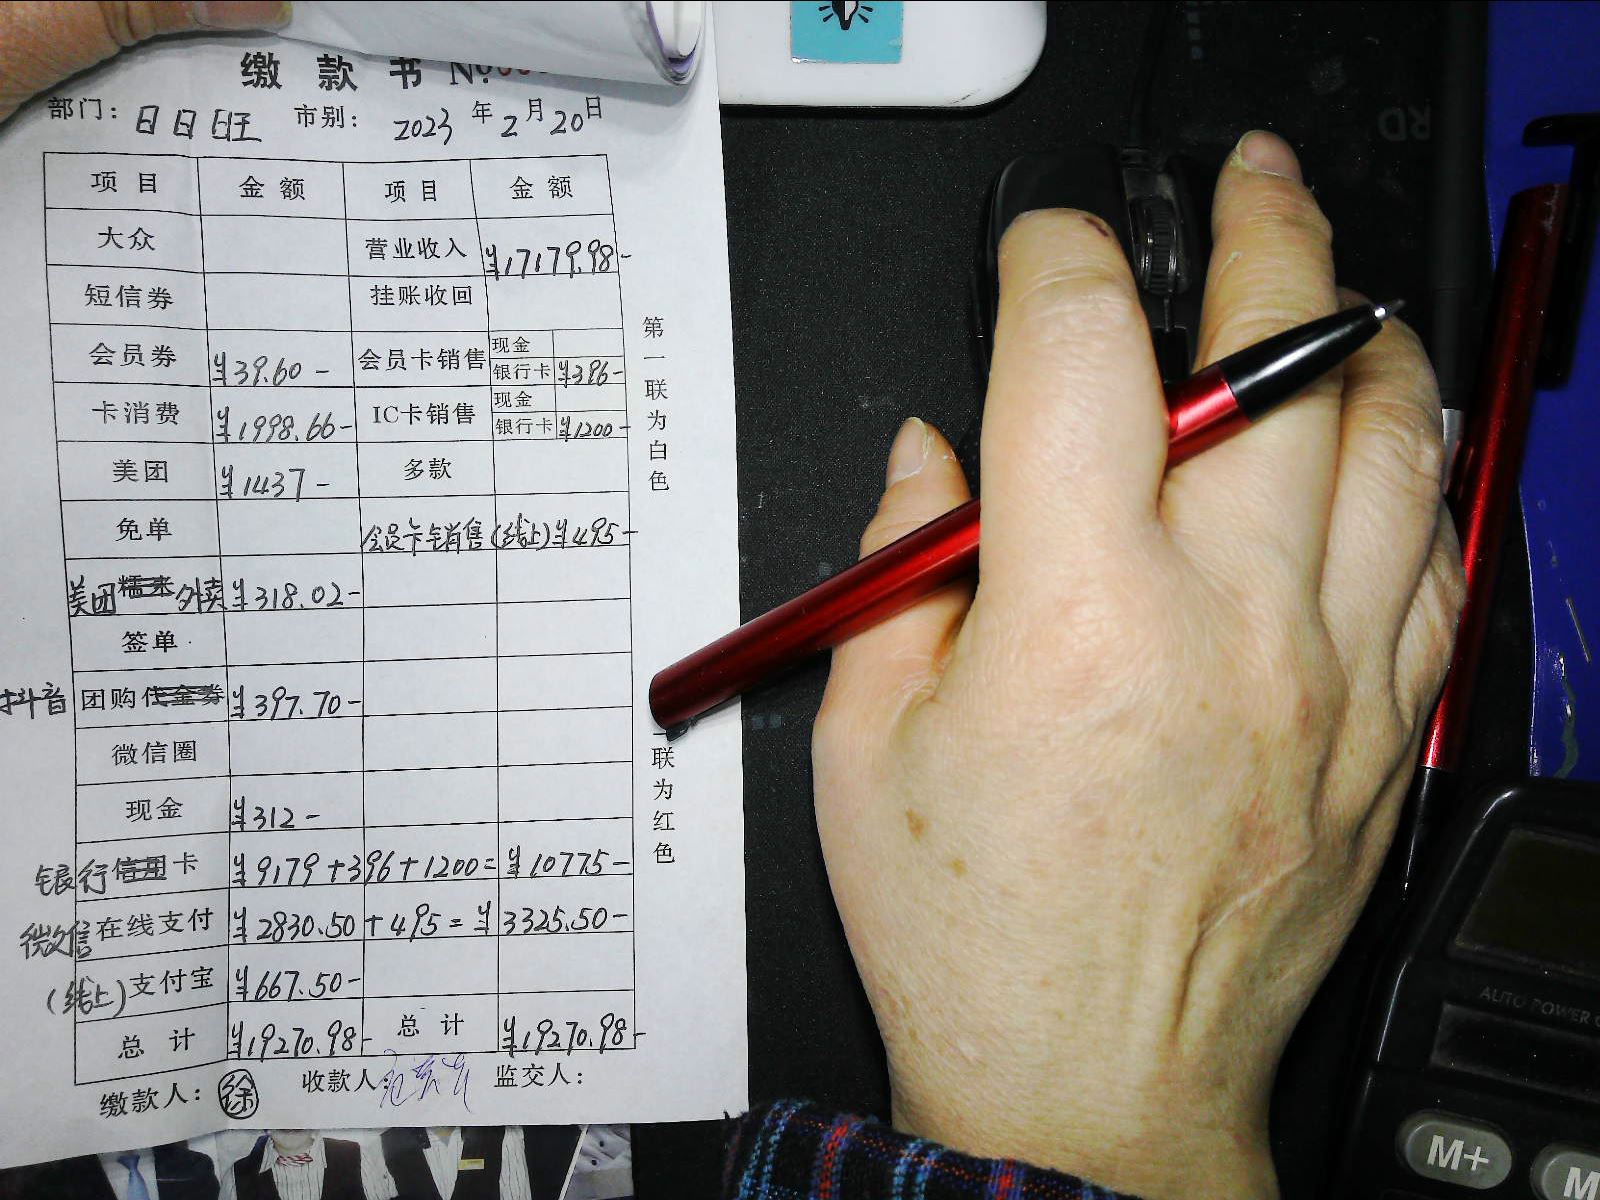 缴 款 书 №
部门: 日日旺 市别: 2023 年 2 月 20 日
项 目 金 额 项 目 金 额
大众 营业收入 ¥17179.98-
短信券 挂账收回
会员券 ¥39.60- 会员卡销售 现金
银行卡 ¥396-
卡消费 ¥1998.66- IC卡销售 现金
银行卡 ¥1200-
美团 ¥1437- 多款
免单 会员卡销售(线上)¥495-
美团糯米外卖 ¥318.02-
签单
抖音 团购代金券 ¥397.70-
微信圈
现金 ¥312-
银行信用卡 ¥9179+396+1200=¥10775-
微信在线支付 ¥2830.50+495=¥3325.50-
(线上)支付宝 ¥667.50-
总 计 ¥19270.98- 总 计 ¥19270.98-
缴款人: 徐 收款人: 监交人:
第一联为白色
联为红色
RD
AUTO POWER
M+
M